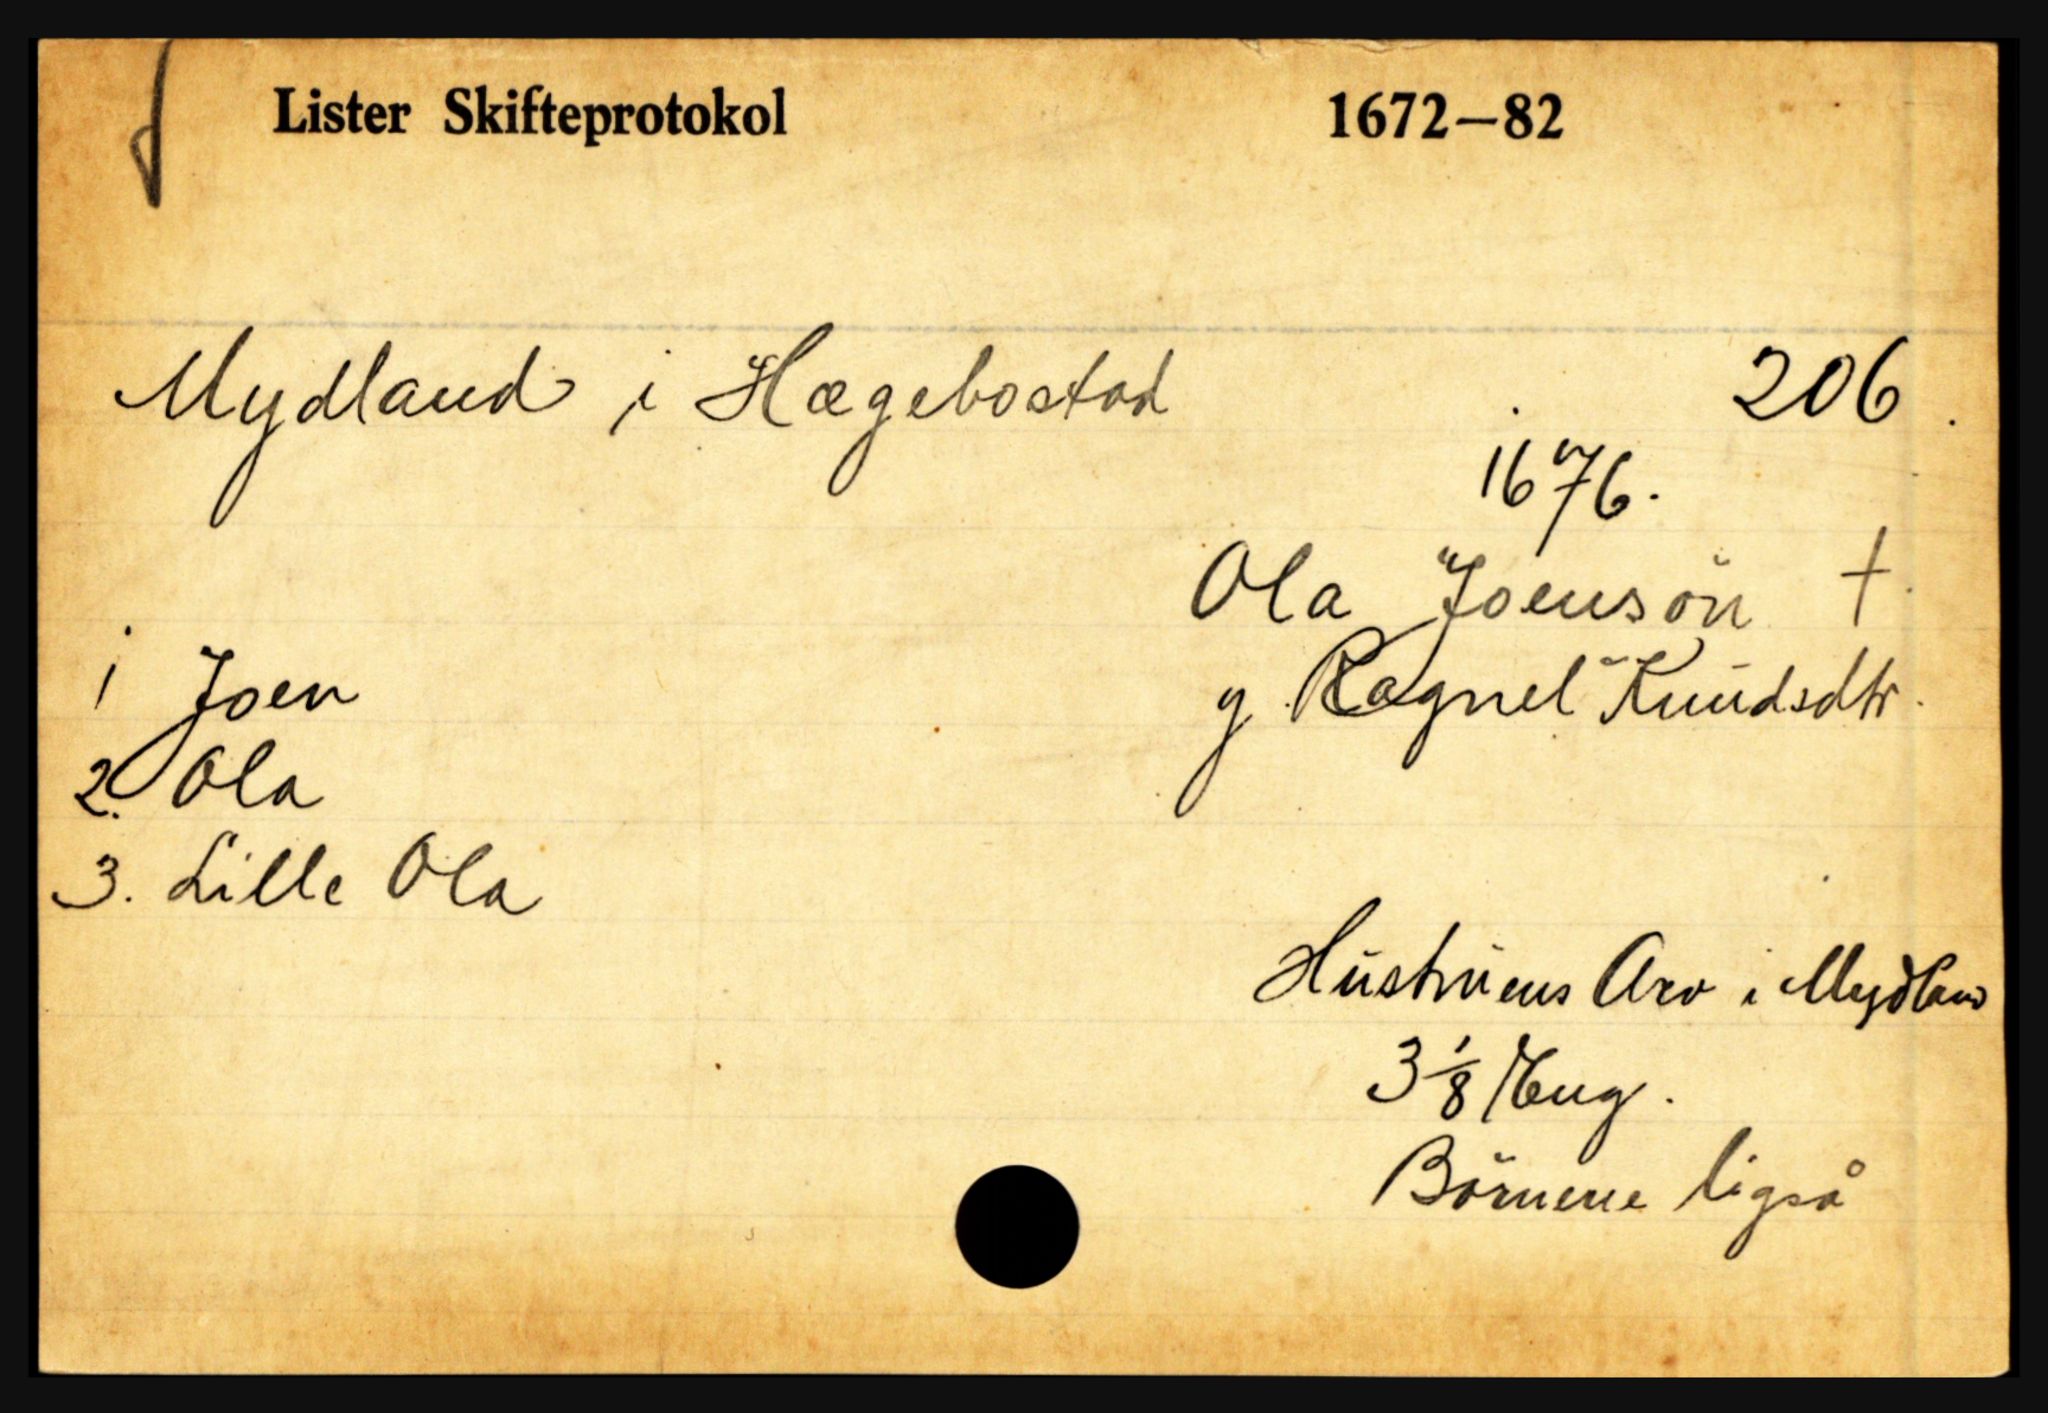 Lister Skifteprotokol 1672—82
Mydland i Hægebostad 206.
1676.
Ola Joensön †
g Ragnel Knudsdtr.
1 Joen
2. Ola
3. Lille Ola
Hustruens Arv i Mydland
3 1/8 Eng.
Börnene ligså